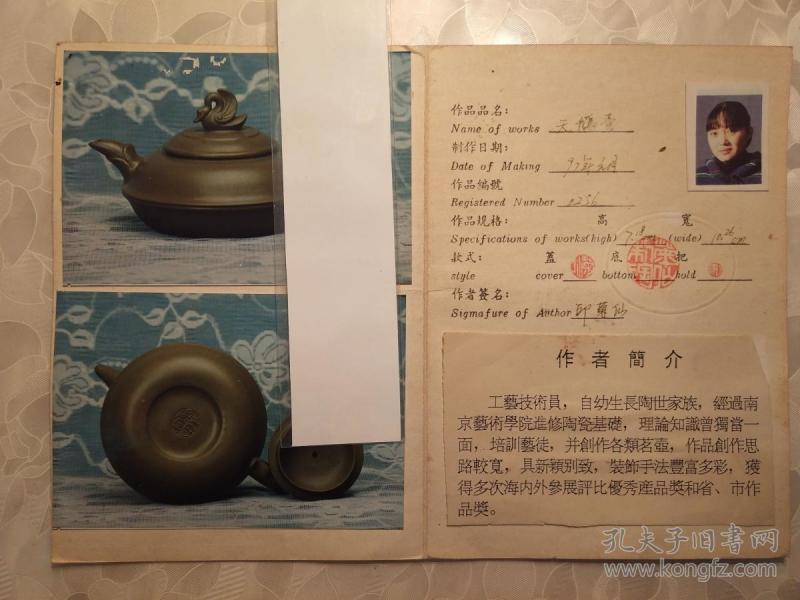 作品品名：
Name of works 天鵝壺
制作日期：
Date of Making 97年元月
作品編號
Registered Number 0256
作品規格： 高 寬
Specifications of works(high) (wide) cm
款式： 蓋 底 把
style cover bottom hold
作者簽名：
Sigmafure of Author 仙
作者簡介
工藝技術員，自幼生長陶世家族，經過南
京藝術學院進修陶瓷基礎，理論知識曾獨當一
面，培訓藝徒，并創作各類茗壺，作品創作思
路較寬，具新穎別致，裝飾手法豐富多彩，獲
得多次海内外參展評比優秀產品獎和省、市作
品獎。
孔夫子旧书网
www.kongfz.com